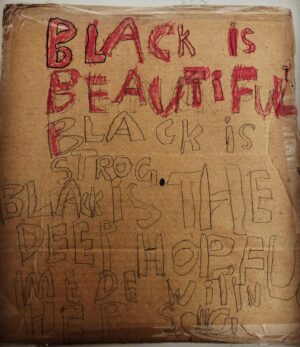 BLACK is
BEAUTIFUL
BLACK is
STROG
BLACK iS THE
DEEP HOPFU
WITIN
HER